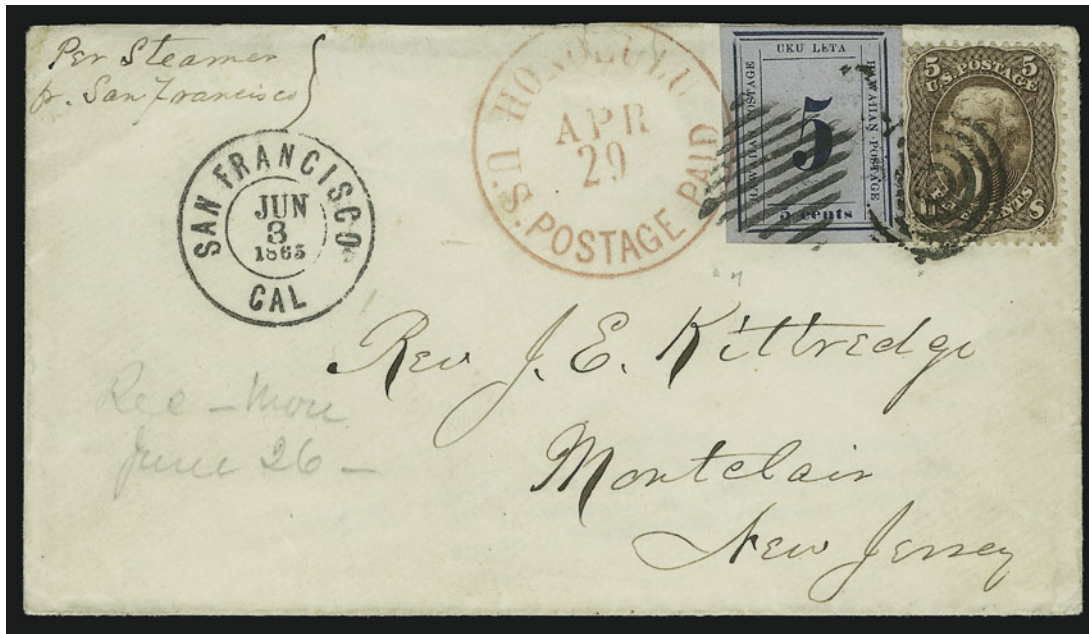 Per Steamer
fr. San Francisco
SAN FRANCISCO
JUN
3
1865
CAL
HONOLULU
APR
29
U.S. POSTAGE PAID
UKU LETA
HAWAIIAN POSTAGE
5
HAWAIIAN POSTAGE
5 cents
5 5
U.S. POSTAGE
CENTS
U S
Rev J. E. Kittredge
Montclair
New Jersey
Rec - Mon
June 26 -